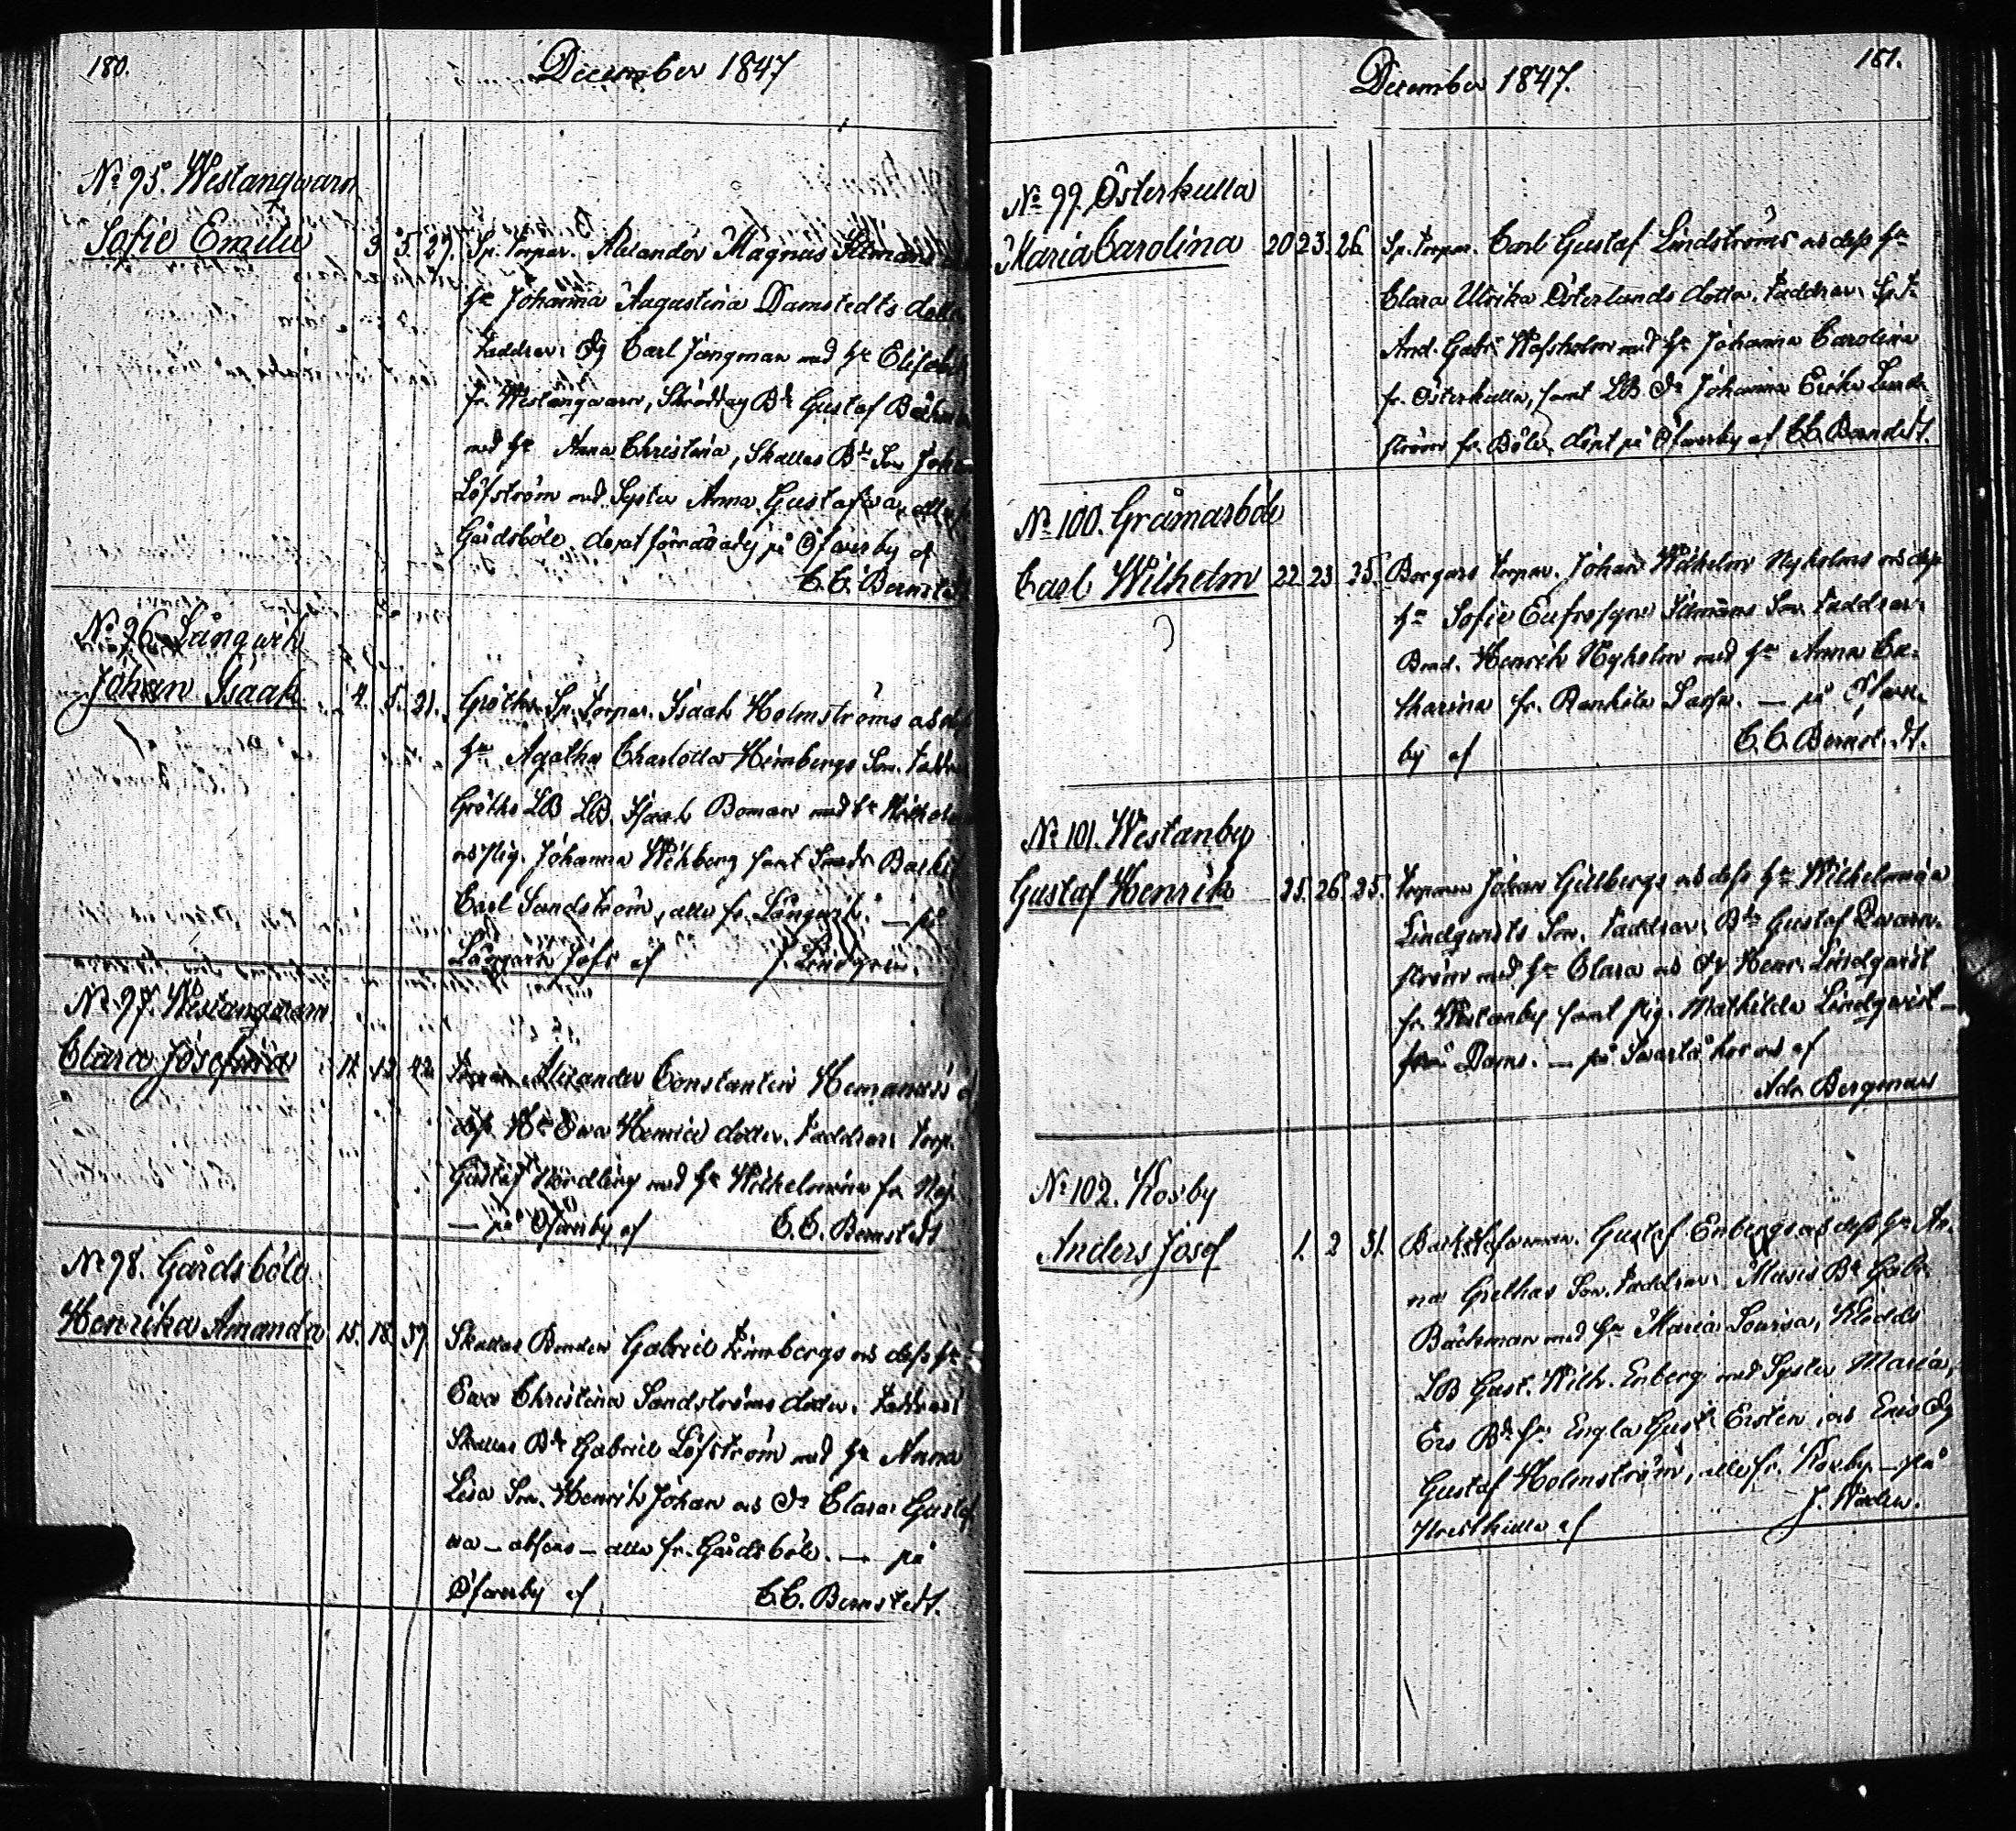 180.
December 1847
No 95. Westanqwarn
Sofie Emilie 3. 5. 27. Sp. torpar. Alexander Magnus Silmans
hu Johanna Augustina Damstedts dotter
Faddrar: Dg Carl Jungman med hu Elisabet
fr. Westanqwarn, Skrädday Bd Gustaf Bäckman
med hu Anna Christina, Skallas Bde Son Johan
Löfström med Syster Anna Gustafva, alla fr.
Gårdsböle. på Öfwerby af
C. C. Bernstedt
No 96. Långwik
Johan Isaak 4. 5. 21. Gröths Sp. torpar. Isaak Holmströms
hu Agatha Charlotta Heimbergs Son. Faddr.
Gröths LB Isaak Boman med hu
pig. Johanna Wikberg samt
Carl Sandström, alla fr. Långwik. — på
af J. Lindgren.
No 97. Westanqwarn
Clara Josefina 11. 12. 42. Torpar. Alexander Constantin Hemanus
dess Hu Ewa Henric dotter. Faddrar: torp.
Gustaf Nordling med hu Wilhelmina fr.
— på Öfwerby af C. C. Bernstedt
No 98. Gårdsböle.
Henrika Amanda 15. 18. 37. Skallas Bonden Gabriel Limbergs dess hu
Ewa Christina Sandströms dotter. Faddrar:
Skallas Bd Gabriel Löfström med hu Anna
Lisa Son. Henrik Johan Dr Clara Gustaf
va — absens — alla fr. Gårdsböle. — på
Öfwerby af C. C. Bernstedt.
181.
December 1847.
No 99. Österkulla
Maria Carolina 20. 23. 26. Sp. torpar. Carl Gustaf Lindströms dess hu
Clara Ulrika Österlunds dotter. Faddrar: Sp. T.
And. Gabr. Wafsholm med hu Johanna Carolina
fr. Österkulla, samt LB Dr Johanna Erika Lind-
ström fr. Böle. döpt på Öfwerby af C. C. Bernstedt.
No 100. Gråmarböle
Carl Wilhelm 22. 23. 25. Borgars torpar. Johan Wilhelm Nyholms dess
hu Sofie Eufrosyne Silmans Son. Faddrar:
Bond. Henrik Nyholm med hu Anna Ca-
tharina fr. Rankila — på Öfwer-
by af C. C. Bernstedt.
No 101. Westanby
Gustaf Henrik 25. 26. 25. Torparen Johan Gillbergs dess hu Wilhelmina
Lindqwists Son. Faddrar: Bde Gustaf Qwarn-
ström med hu Clara Dg Henr. Lindqwist
fr. Westanby samt pig. Mathilda Lindqwist —
från — på Swartå af
Adr. Bergman
No 102. Kosby
Anders Josef 1. 2. 31. Gustaf Enbergs dess hu An-
na Grethas Son. Faddrar: Masis Bd Gabr.
Bäckman med hu Maria Lovisa,
LB Gust. Wilh. Enberg med Syster Maria,
Ers Bde hu Engla Gust. Ersten, Ers Dg
Gustaf Holmström, alla fr. Kosby — på
af J. Wadén.